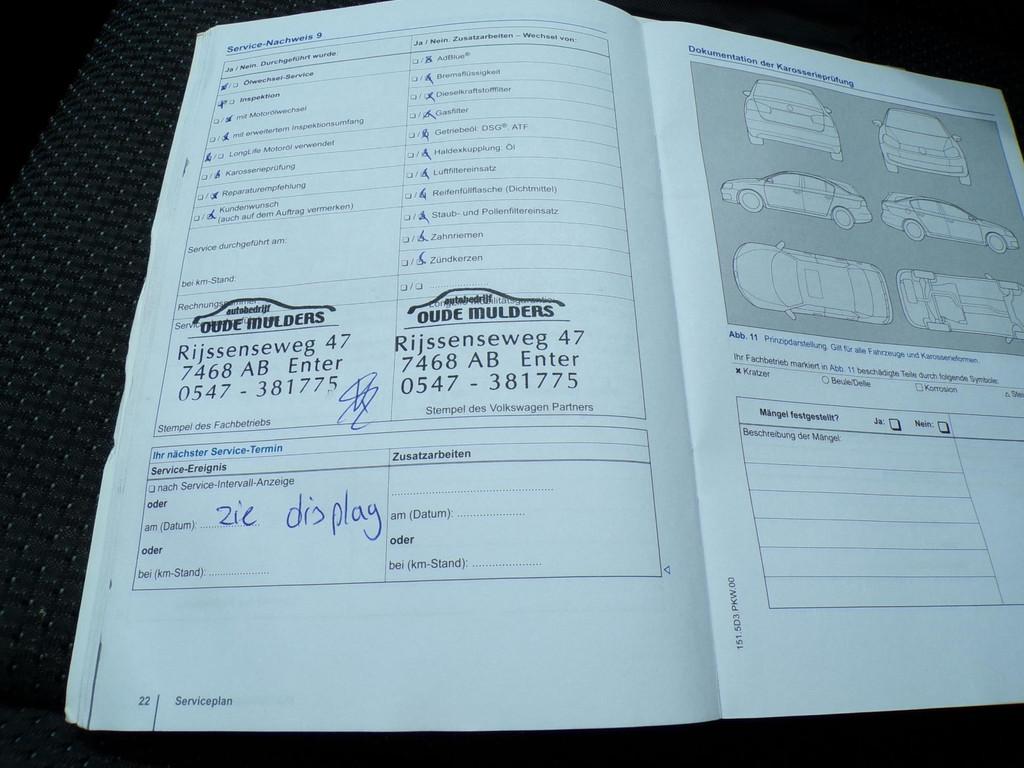 Service-Nachweis 9
Ja / Nein. Durchgeführt wurde:
☒/❏ Ölwechsel-Service
☒/❏ Inspektion
❏/☒ mit Motorölwechsel
❏/☒ mit erweitertem Inspektionsumfang
☒/❏ LongLife Motoröl verwendet
❏/☒ Karosserieprüfung
❏/☒ Reparaturempfehlung
❏/☒ Kundenwunsch
(auch auf dem Auftrag vermerken)
Service durchgeführt am:
bei km-Stand:
autobedrijf
OUDE MULDERS
Rijssenseweg 47
7468 AB Enter
0547 - 381775
Stempel des Fachbetriebs
Ja / Nein. Zusatzarbeiten – Wechsel von:
❏/☒ AdBlue®
❏/☒ Bremsflüssigkeit
❏/☒ Dieselkraftstofffilter
❏/☒ Gasfilter
❏/☒ Getriebeöl: DSG®, ATF
❏/☒ Haldexkupplung: Öl
❏/☒ Luftfiltereinsatz
❏/☒ Reifenfüllflasche (Dichtmittel)
❏/☒ Staub- und Pollenfiltereinsatz
❏/☒ Zahnriemen
❏/☒ Zündkerzen
❏/❏ ........................
autobedrijf
OUDE MULDERS
Rijssenseweg 47
7468 AB Enter
0547 - 381775
Stempel des Volkswagen Partners
Ihr nächster Service-Termin
Service-Ereignis
❏ nach Service-Intervall-Anzeige
oder
am (Datum): zie display
oder
bei (km-Stand): ..................
Zusatzarbeiten
................................................
am (Datum): ....................
oder
bei (km-Stand): ....................
22 Serviceplan
Dokumentation der Karosserieprüfung
Abb. 11 Prinzipdarstellung. Gilt für alle Fahrzeuge und Karosserieformen.
Ihr Fachbetrieb markiert in Abb. 11 beschädigte Teile durch folgende Symbole:
✖ Kratzer ○ Beule/Delle □ Korrosion
Mängel festgestellt? Ja: ❏ Nein: ❏
Beschreibung der Mängel:
151.5D3.PKW.00